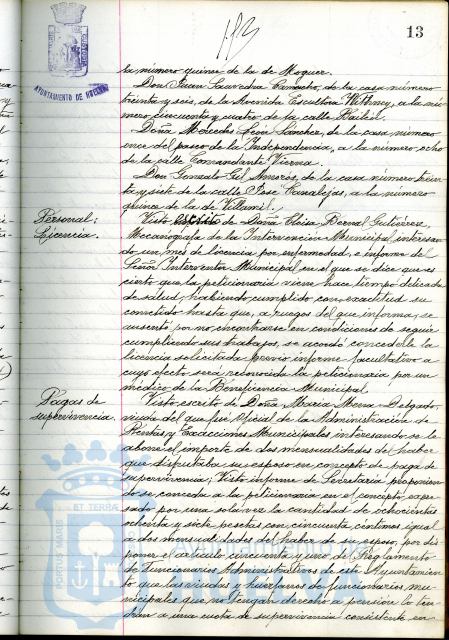 13
AYUNTAMIENTO DE HUELVA
la número quince de la de Moguer.
Don Juan Saavedra Camacho, de la casa número
treinta y seis, de la Avenida Escultora Withney, a la nú-
mero cincuenta y cuatro de la calle Rábida.
Doña Mercedes León Sánchez, de la casa número
once del paseo de la Independencia, a la número ocho
de la calle Comandante Vierna.
Don Gonzalo Gel Amorós, de la casa número trein-
ta y siete de la calle José Canalejas, a la número
quince de la de
Personal:
Licencia.
Visto escrito de Doña Eloisa Bernal Gutiérrez,
Mecanógrafa de la Intervención Municipal, interesan-
do un mes de licencia por enfermedad, e informe del
Señor Interventor Municipal en el que se dice que es
cierto que la peticionaria viene hace tiempo delicada
de salud, habiendo cumplido con exactitud su
cometido hasta que, a ruegos del que informa, se
ausentó por no encontrarse en condiciones de seguir
cumpliendo sus trabajos, se acordó concederle la
licencia solicitada previo informe facultativo a
cuyo efecto será reconocida la peticionaria por un
médico de la Beneficencia Municipal.
Pagas de
supervivencia.
Visto escrito de Doña María Mora Delgado,
viuda del que fué Oficial de la Administración de
Rentas y Exacciones Municipales, interesando se le
abone el importe de dos mensualidades del haber
que disfrutaba su esposo en concepto de paga de
supervivencia; Visto informe de Secretaría proponien-
do se conceda a la peticionaria en el concepto expre-
sado por una sola vez la cantidad de ochocientas
ochenta y siete pesetas con cincuenta céntimos, igual
a dos mensualidades del haber de su esposo, por dis-
poner el artículo cincuenta y uno del Reglamento
de Funcionarios Administrativos de este Ayuntamien-
to que las viudas y huérfanos de funcionarios mu-
nicipales que no tengan derecho a pensión lo ten-
drán a una cuota de supervivencia consistente en
PORTUS MARIS ET TERRAE CUSTODIA
HUELVA